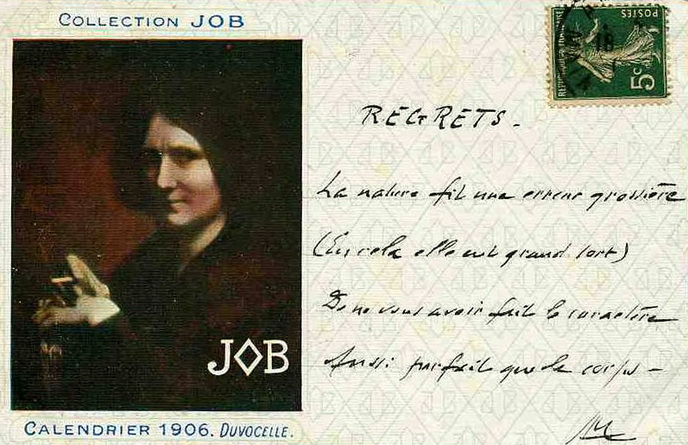 COLLECTION JOB
POSTES
5c
REGRETS.
La nature fit une erreur grossière
(En cela elle eut grand tort)
De ne vous avoir fait le caractère
Aussi parfait que le corps -
JOB
CALENDRIER 1906. DUVOCELLE.